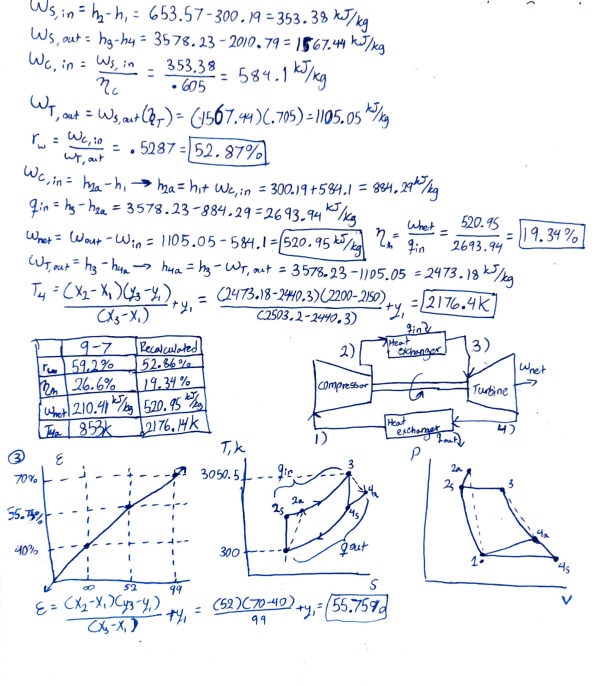 Ws, in = h2-h1 = 653.57-300.19 = 353.38 kJ/kg
Ws, out = h3-h4 = 3578.23-2010.79 = 1567.44 kJ/kg
Wc, in = Ws, in / ηc = 353.38 / .605 = 584.1 kJ/kg
WT, out = Ws, out (ηT) = (1567.44)(.705) = 1105.05 kJ/kg
rw = Wc, in / WT, out = .5287 = 52.87%
Wc, in = h2a-h1 → h2a = h1 + Wc, in = 300.19+584.1 = 884.29 kJ/kg
qin = h3-h2a = 3578.23-884.29 = 2693.94 kJ/kg
ηth = Wnet / qin = 520.95 / 2693.94 = 19.34%
Wnet = Wout - Win = 1105.05-584.1 = 520.95 kJ/kg
WT, out = h3-h4a → h4a = h3-WT, out = 3578.23-1105.05 = 2473.18 kJ/kg
T4 = (x2-x1)(y3-y1) / (x3-x1) + y1 = (2473.18-2440.3)(2200-2150) / (2503.2-2440.3) + y1 = 2176.4K
9-7 Recalculated
rw 59.2% 52.86%
ηth 26.6% 19.34%
Wnet 210.41 kJ/kg 520.95 kJ/kg
T4a 853K 2176.14K
qin
2) Heat exchanger 3)
compressor Turbine Wnet
1) Heat exchanger 4)
qout
③ ε
70%
55.75%
40%
00 52 99
T, K
3050.5
300
qin
3
2s 2a 4a
4s
qout
S
P
2a
2s 3
4a
1 4s
V
ε = (x2-x1)(y3-y1) / (x3-x1) + y1 = (52)(70-40) / 99 + y1 = 55.75%